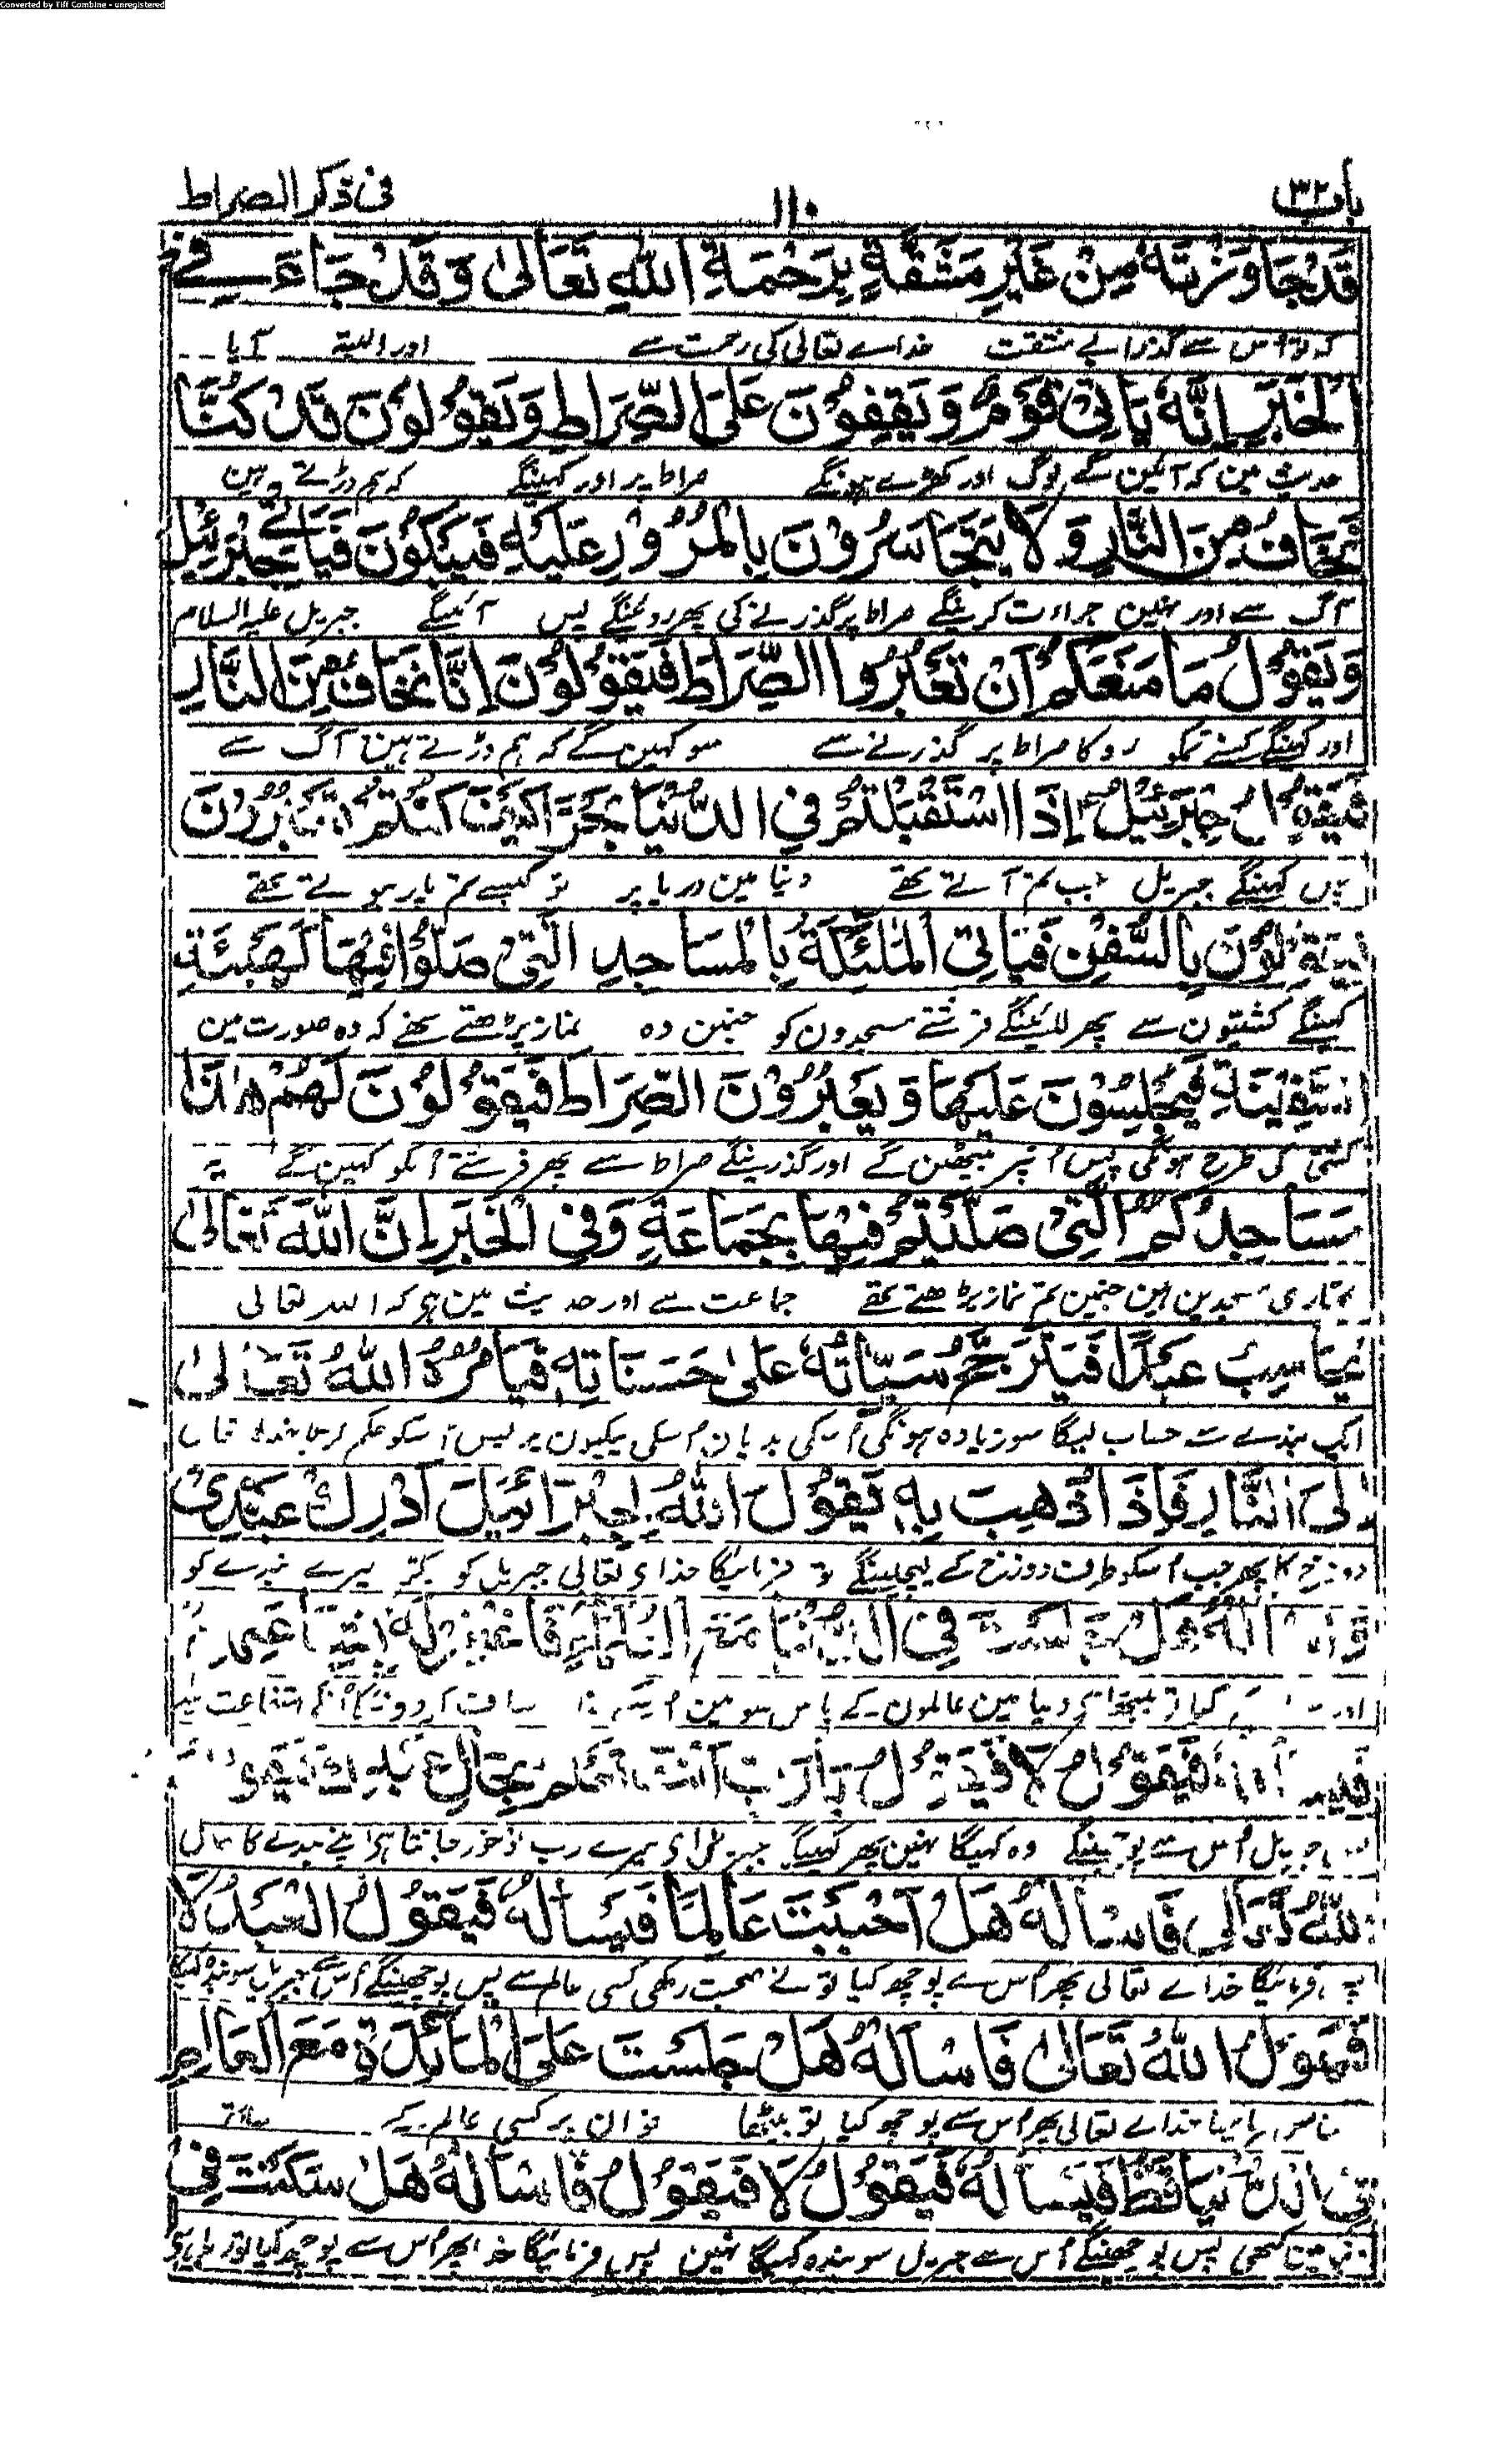 Converted by Tiff Combine - unregistered
باب ٣٢
١١٠
فی ذکر الصراط
قَدْ جَاوَزْتَهُ مِنْ غَيْرِ مَشَقَّةٍ بِرَحْمَةِ اللّٰهِ تَعَالٰى وَقَدْ جَاءَ فِي
کہ تو اس سے گذرا بے مشقت خداے تعالی کی رحمت سے اور البتہ آیا
الْخَبَرِ إِنَّهُ يَأْتِي قَوْمٌ وَيَقِفُونَ عَلَى الصِّرَاطِ وَيَقُولُونَ قَدْ كُنَّا
حدیث مین کہ آئین گے لوگ اور کھڑے ہونگے صراط پر اور کہینگے کہ ہم ڈرتے ہین
نَخَافُ مِنَ النَّارِ وَلَا يَتَجَاسَرُوْنَ بِالْمُرُوْرِ عَلَيْهِ فَيَبْكُوْنَ فَيَأْتِي جِبْرَئِيْلُ
آگ سے اور نہین جراءت کرینگے صراط پر گذرنے کی پھر روئینگے پس آئینگے جبریل علیہ السلام
وَيَقُوْلُ مَا مَنَعَكُمْ اَنْ تَعْبُرُوا الصِّرَاطَ فَيَقُوْلُوْنَ اِنَّا نَخَافُ مِنَ النَّارِ
اور کہینگے کسنے تمکو روکا صراط پر گذرنے سے سو کہین گے کہ ہم ڈرتے ہین آگ سے
فَيَقُوْلُ جِبْرَئِيْلُ اِذَا اسْتَقْبَلْتُمْ فِي الدُّنْيَا بَحْرًا كَيْفَ كُنْتُمْ تَعْبُرُوْنَ
کہینگے جبریل جب تم آتے تھے دنیا مین دریا پر تو کیسے تم پار ہوتے تھے
فَيَقُوْلُوْنَ بِالسُّفُنِ فَيَأْتِي الْمَلٰئِكَةُ بِالْمَسَاجِدِ الَّتِيْ صَلُّوْا فِيْهَا كَهَيْئَةِ
کہینگے کشتیون سے پھر لائینگے فرشتے مسجدون کو جنمین وہ نماز پڑھتے تھے کہ وہ صورت مین
السَّفِيْنَةِ فَيَجْلِسُوْنَ عَلَيْهَا وَيَعْبُرُوْنَ الصِّرَاطَ فَيَقُوْلُوْنَ لَهُمْ هٰذَا
کشتی کی طرح ہونگی پس اُنپر بیٹھین گے اور گذرینگے صراط سے پھر فرشتے اُنکو کہین گے یہ
مَسَاجِدُكُمُ الَّتِيْ صَلَّيْتُمْ فِيْهَا بِجَمَاعَةٍ وَفِي الْخَبَرِ اِنَّ اللّٰهَ تَعَالٰى
تمہاری مسجدین ہین جنمین تم نماز پڑھتے تھے جماعت سے اور حدیث مین ہی کہ اللہ تعالی
يُحَاسِبُ عَبْدًا فَيَتَرَجَّحُ سَيِّاٰتُهُ عَلٰى حَسَنَاتِهٖ فَيَأْمُرُهُ اللّٰهُ تَعَالٰى
ایک بندے سے حساب لیگا سو زیادہ ہونگی اُسکی بدیان اُسکی نیکیون پر پس اُسکو حکم کریگا
اِلَى النَّارِ فَاِذَا ذُهِبَ بِهٖ يَقُوْلُ اللّٰهُ لِجِبْرَائِيْلَ اَدْرِكْ عَبْدِيْ
دوزخ کا پھر جب اُسکو طرف دوزخ کے لیچلینگے تو فرمائیگا خداے تعالی جبریل کو میرے بندے کو
فِي الدُّنْيَا
دنیا مین عالمون کے پاس سو مین
فَيَقُوْلُ لَا فَيَقُوْلُ يَا رَبِّ اَنْتَ اَعْلَمُ بِحَالِ عَبْدِكَ
جبریل اُس سے پوچھینگے وہ کہیگا نہین پھر کہینگے جبریل اے میرے رب تو خود جانتا ہی اپنے بندے کا حال
اللّٰهُ تَعَالٰى فَاسْأَلْهُ هَلْ اَحْبَبْتَ عَالِمًا فَيَسْأَلُهُ فَيَقُوْلُ الْعَبْدُ لَا
فرمائیگا خداے تعالی پھر اُس سے پوچھ کیا تو نے محبت رکھی کسی عالم سے پس پوچھینگے
فَيَقُوْلُ اللّٰهُ تَعَالٰى فَاسْأَلْهُ هَلْ جَلَسْتَ عَلَى الْمَائِدَةِ مَعَ الْعَالِمِ
خداے تعالی پھر اُس سے پوچھ کیا تو بیٹھا خوان پر کسی عالم کے
فِي الدُّنْيَا قَطُّ فَيَسْأَلُهُ فَيَقُوْلُ لَا فَيَقُوْلُ فَاسْأَلْهُ هَلْ سَكَنْتَ فِيْ
کبھی پس پوچھینگے اُس سے جبریل سو بندہ کہیگا نہین پس فرمائیگا خدا پھر اُس سے پوچھ کیا تو